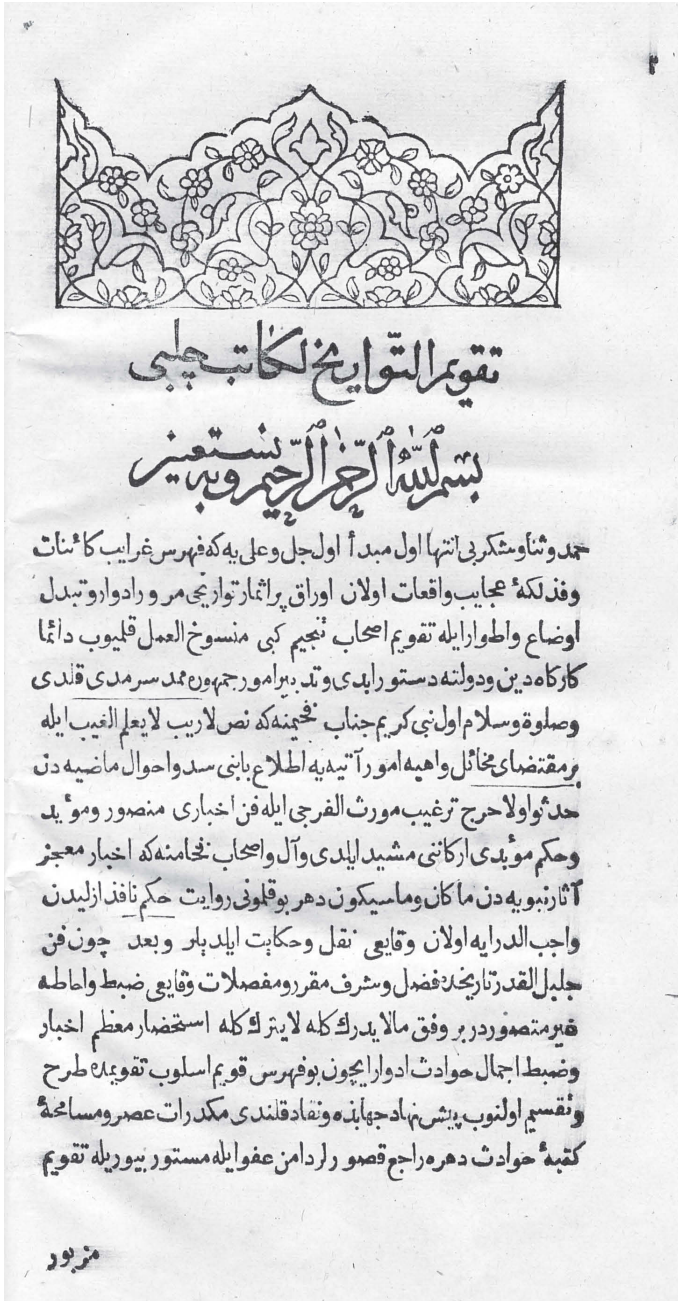 ٢
تقويم التّواريخ لكاتب چلبى
بسم الله الرّحمن الرّحيم وبه نستعين
حمد وثنا وشكر بى انتها اول مبدأ اول جل وعلى يه كه فهرس غرايب كائنات
وفذلكهٔ عجايب واقعات اولان اوراق پراثمار تواريخى مرور ادوار وتبدل
اوضاع واطوار ايله تقويم اصحاب تنجيم كبى منسوخ العمل قلميوب دائما
كاركاه دين ودولته دستور ابدى وتدبير امور جمهوره ممد سرمدى قلدى
وصلوة وسلام اول نبى كريم جناب فخيمنه كه نص لاريب لا يعلم الغيب ايله
بر مقتضاى مخائل واهيه امور آتيه يه اطلاع بابنى سد واحوال ماضيه دن
حدثوا ولا حرج ترغيب مورث الفرجى ايله فن اخبارى منصور ومؤيد
وحكم مؤبدى اركاننى مشيد ايلدى وآل واصحاب فخامنه كه اخبار معجز
آثار نبويه دن ماكان وماسيكون دهر بوقلمونى روايت حكم نافذ ازليدن
واجب الدرايه اولان وقايعى نقل وحكايت ايلديلر وبعد چون فن
جليل القدر تاريخده فضل وشرف مقرر ومفصلات وقايعى ضبط واحاطه
غير متصور در بر وفق مالايدرك كله لايترك كله استحضار معظم اخبار
وضبط اجمال حوادث ادوار ايچون بو فهرس قويم اسلوب تقويمده طرح
وتقسيم اولنوب پيش نهاد جهابذه ونقاد قلندى مكدرات عصر ومسامحهٔ
كتبهٔ حوادث دهره راجع قصورلر دامن عفو ايله مستور بيوريله تقويم
مزبور